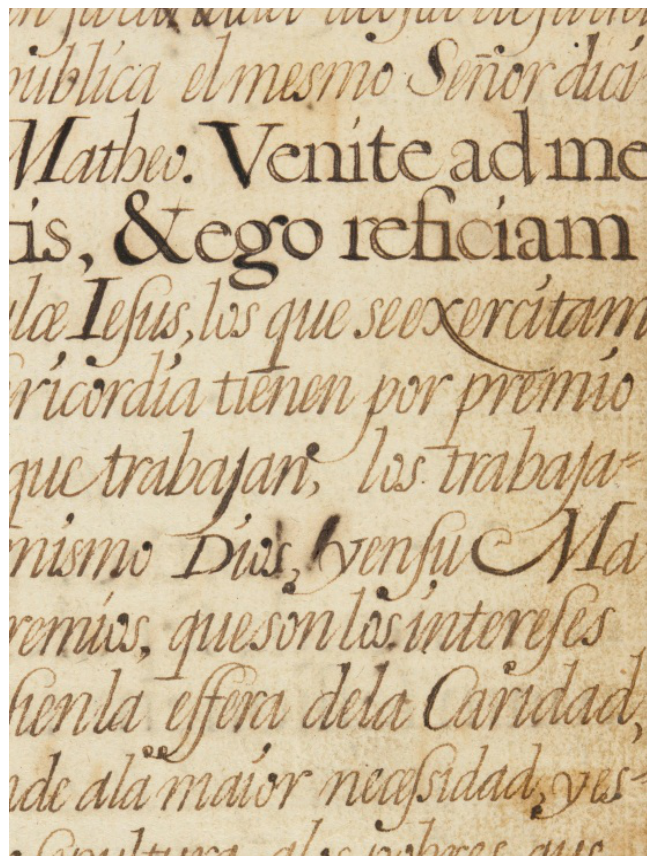 publica el mesmo Señor dici
Matheo. Venite ad me
tis, & ego reficiam
læ Iesus, los que se exercitam
ricordia tienen por premio
que trabajan, los trabaja-
mismo Dios, y en su Ma
remios, que son los intereſes
en la eſſera de la Caridad,
de a la maior neceſsidad, y es-
sepultura a los pobres que